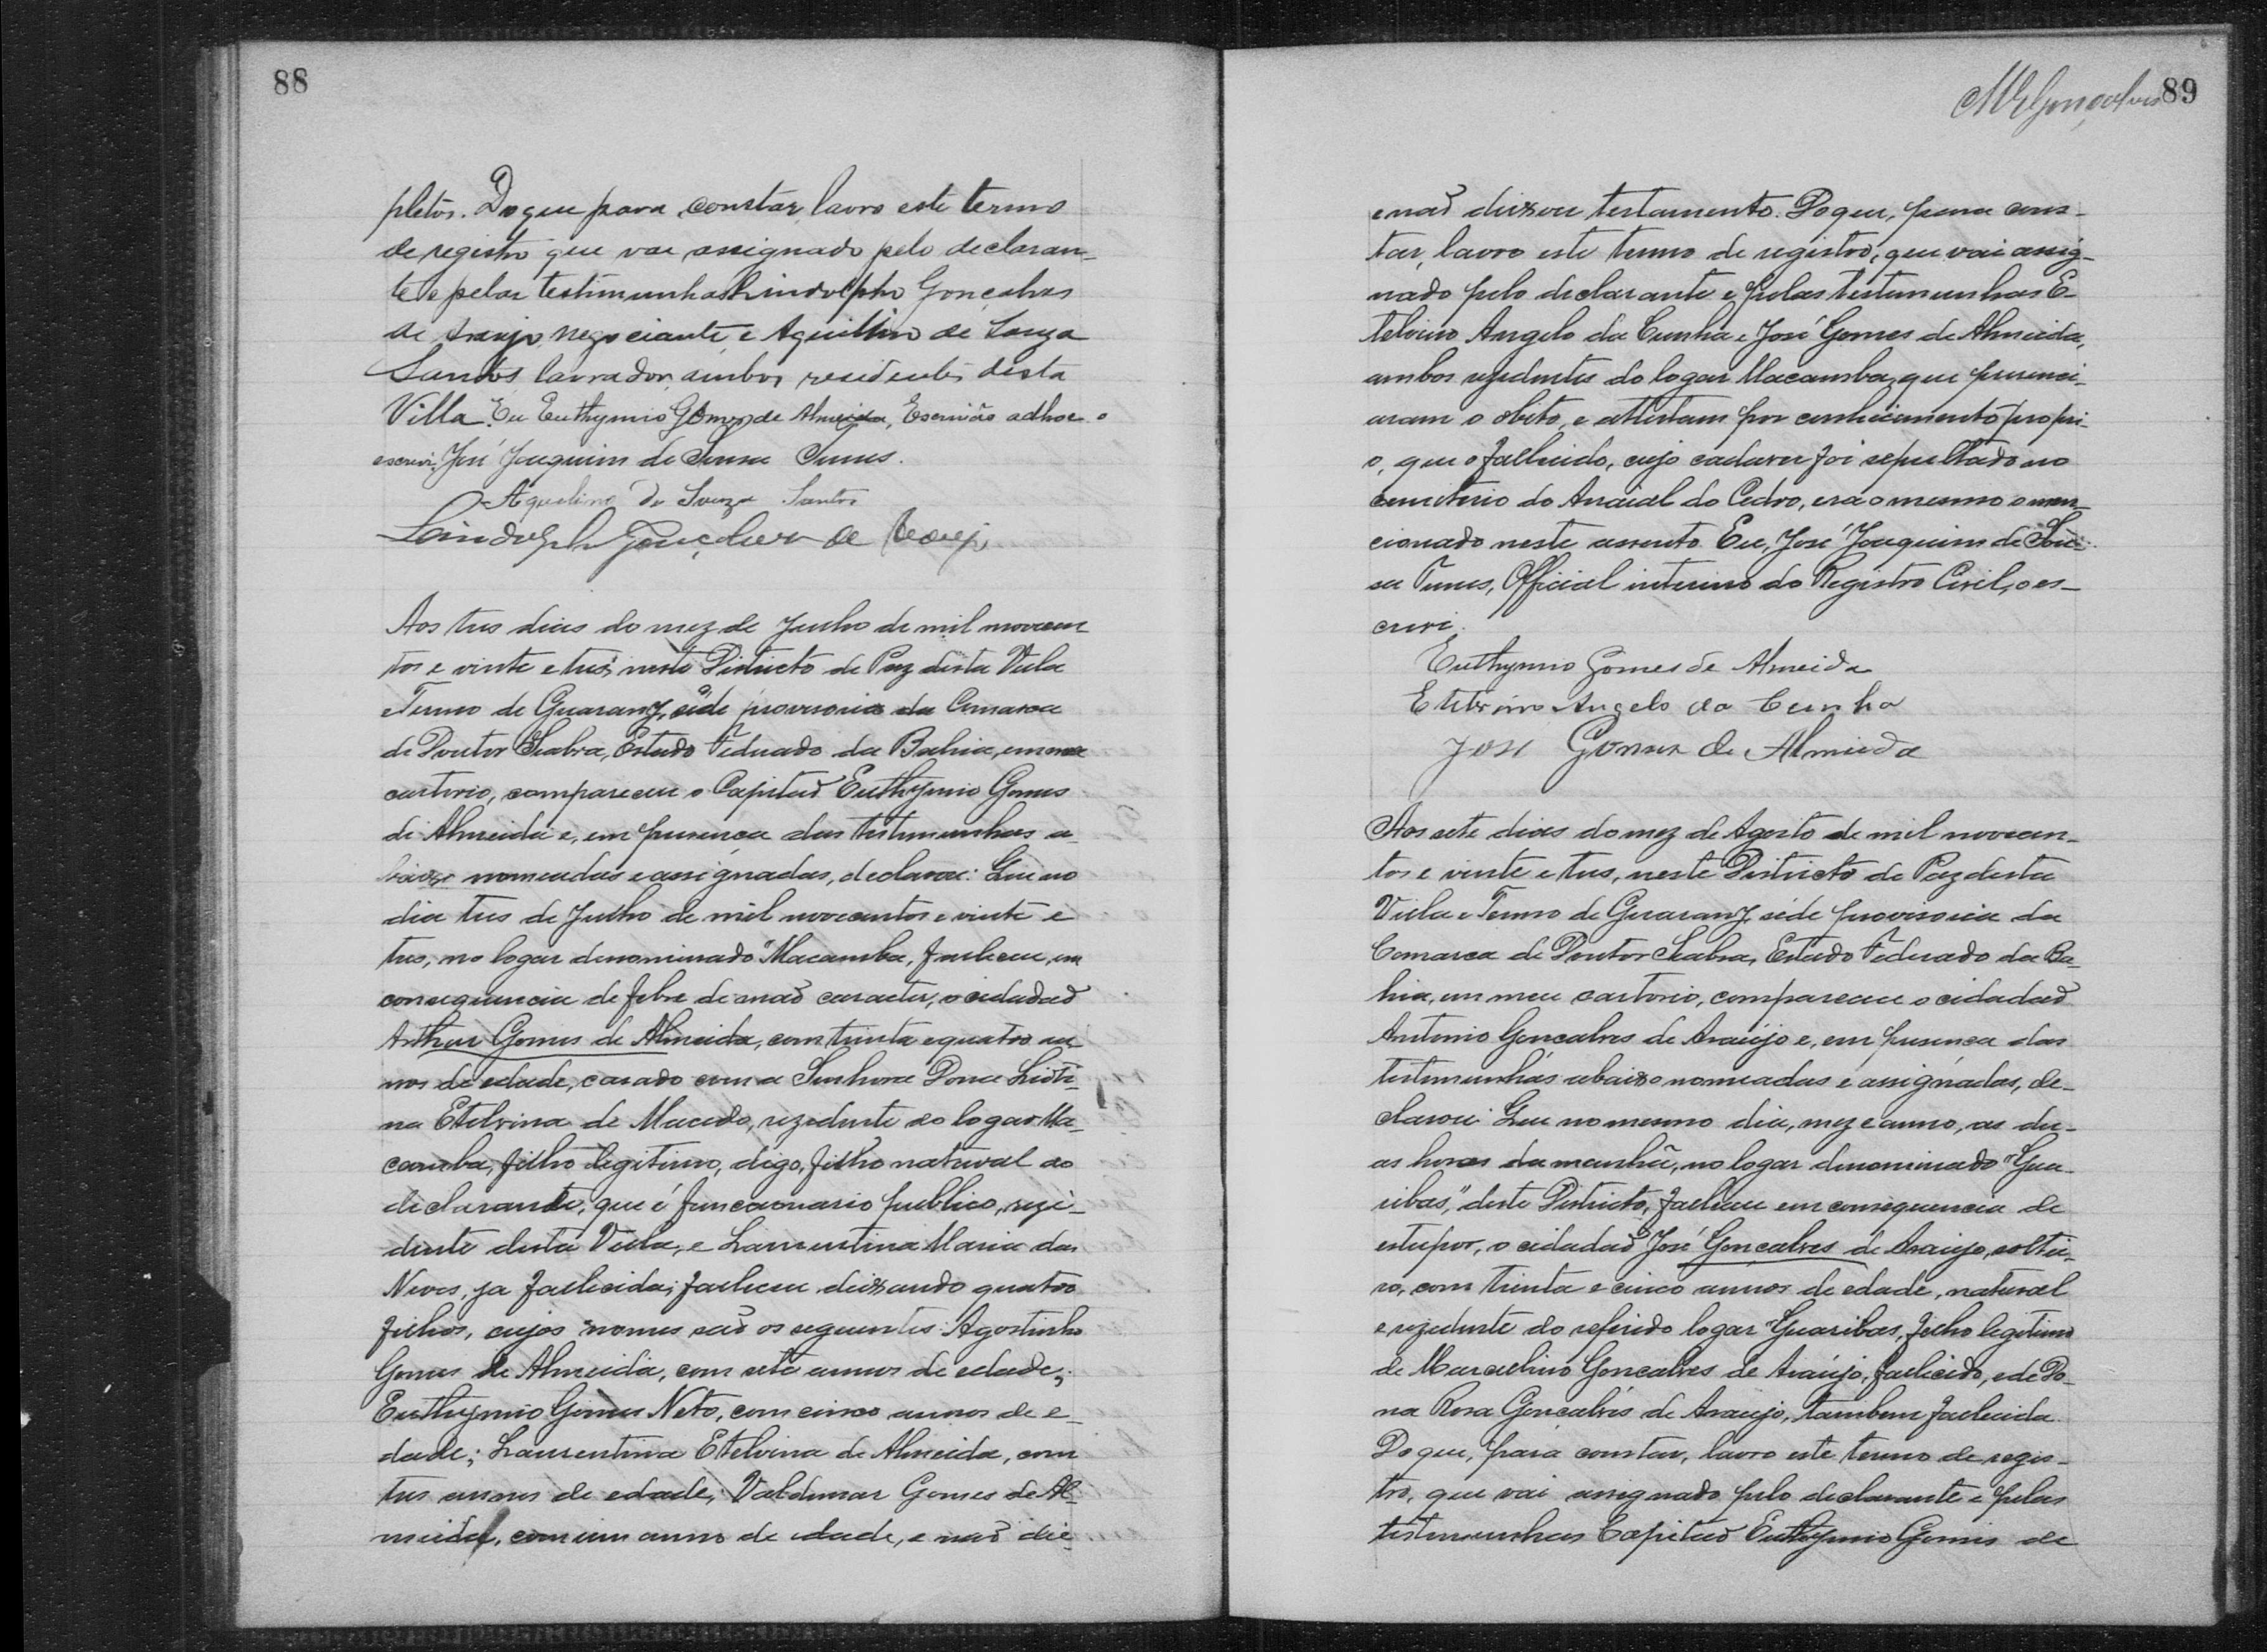 88
pletos. Do que para constar lavro este termo
de registro que vae assignado pelo declaran-
te e pelas testimunhas Lindolpho Gonçalves
de Araujo, negociante, e Aquilino de Souza
Santos lavrador, ambos residentes desta
Villa. Eu Euthymio Gomes de Almeida, Escrivão adhoc o
escrevi. José Joaquim de Sousa Tunes.
Aquelino de Souza Santos
Lindolpho Gonçalves de Araujo
Aos tres dias do mez de Julho de mil novecen
tos e vinte e tres, neste Districto de Paz desta Villa
e Termo de Guarany, séde provisoria da Comarca
de Doutor Seabra, Estado Federado da Bahia, em meu
cartorio, compareceu o Capitão Euthymio Gomes
de Almeida e, em presença das testimunhas a-
baixo nomeadas e assignadas, declarou: Que no
dia tres de Julho de mil novecentos e vinte e
tres, no logar denominado "Macamba, falleceu, em
consequencia de febre de mao caracter, o cidadão
Arthur Gomes de Almeida, com trinta e quatro an
nos de edade, casado com a Senhora Dona
na Etelvina de Macedo, rezidente do logar Ma-
camba, filho legitimo, digo, filho natural do
declarante, que é funccionario publico, rezi-
dente desta Villa, e Laurentina Maria das
Neves, ja fallecida; falleceu deixando quatro
filhos, cujos nomes são os seguintes: Agostinho
Gomes de Almeida, com sete annos de edade;
Euthymio Gomes Neto, com cinco annos de e-
dade; Laurentina Etelvina de Almeida, com
tres annos de edade; Valdemar Gomes de Al-
meida, com um anno de edade, e não dei-
MEGonçalves 89
e não deixou testamento. Do que, para cons-
tar, lavro este termo de registro, que vai assig-
nado pelo declarante e pelas testemunhas E-
telvino Angelo da Cunha e José Gomes de Almeida,
ambos rezidentes do logar Macamba, que presenci-
aram o obito, e attestam por conhecimento propri-
o, que o fallecido, cujo cadaver foi sepultado no
cemiterio do Arraial do Cedro, era o mesmo o men-
cionado neste assento. Eu, José Joaquim de Sou-
sa Tunes, Official interino do Registro Civil, o es-
crevi.
Euthymio Gomes de Almeida
Etelvino Angelo da Cunha
José Gomes de Almeida
Aos sete dias do mez de Agosto de mil novecen-
tos e vinte e tres, neste Districto de Paz desta
Villa e Termo de Guarany, séde provisoria da
Comarca de Doutor Seabra, Estado Federado da Ba-
hia, em meu cartorio, compareceu o cidadão
Antonio Gonçalves de Araujo e, em presença das
testimunhas abaixo nomeadas e assignadas, de-
clarou: Que no mesmo dia, mez e anno, as du-
as horas da manhã, no logar denominado "Gua-
ribas," deste Districto, falleceu em consequencia de
estupor, o cidadão José Gonçalves de Araujo, soltei-
ro, com trinta e cinco annos de edade, natural
e rezidente do referido logar "Guaribas, filho legitimo
de Marcelino Gonçalves de Araujo, fallecido, e de Do-
na Rosa Gonçalves de Araujo, tambem fallecida.
Do que, para constar, lavro este termo de regis-
tro, que vai assignado pelo declarante e pelas
testimunhas Capitão Euthymio Gomes de